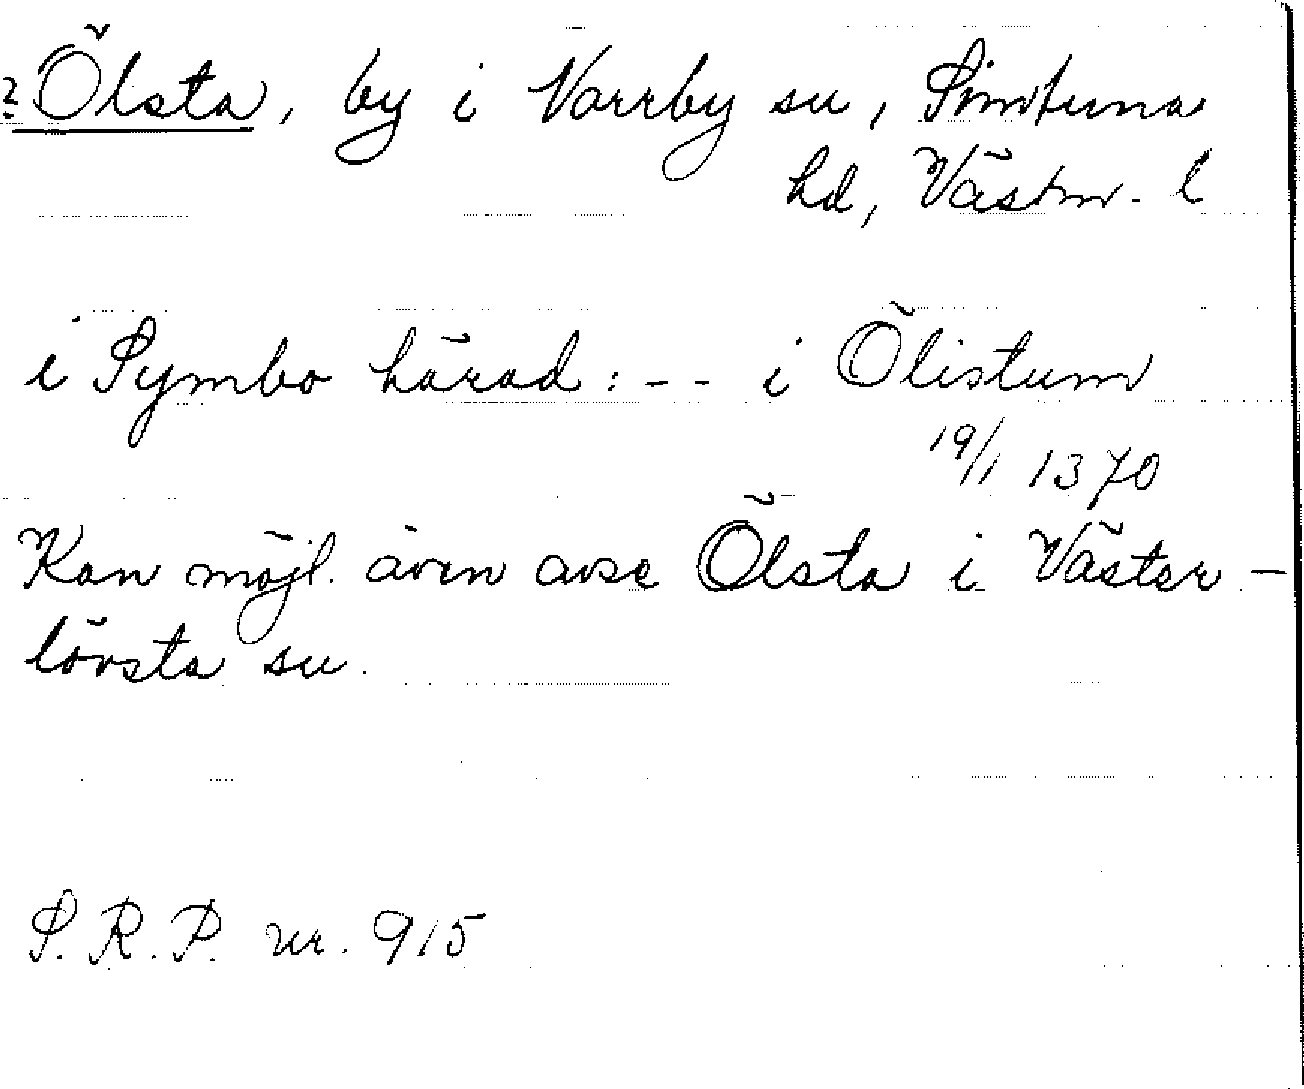 ? Ölsta, by i Norrby sn, Simtuna
hd, Västm. l
i Symbo härad: - - i Ölistum
19/1 1370
Kan möjl. även avse Ölsta i Väster-
lövsta sn.
S.R.P. nr. 915